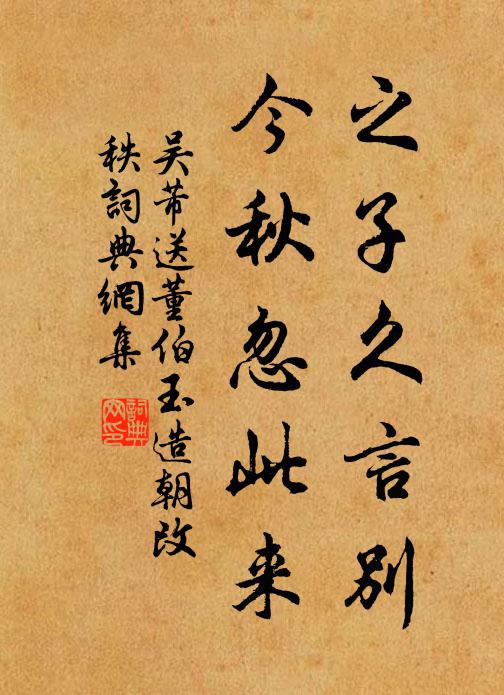 之子久言别
今秋忽此来
吴芾送董伯玉造朝改
秩詞典網集
詞典
网印